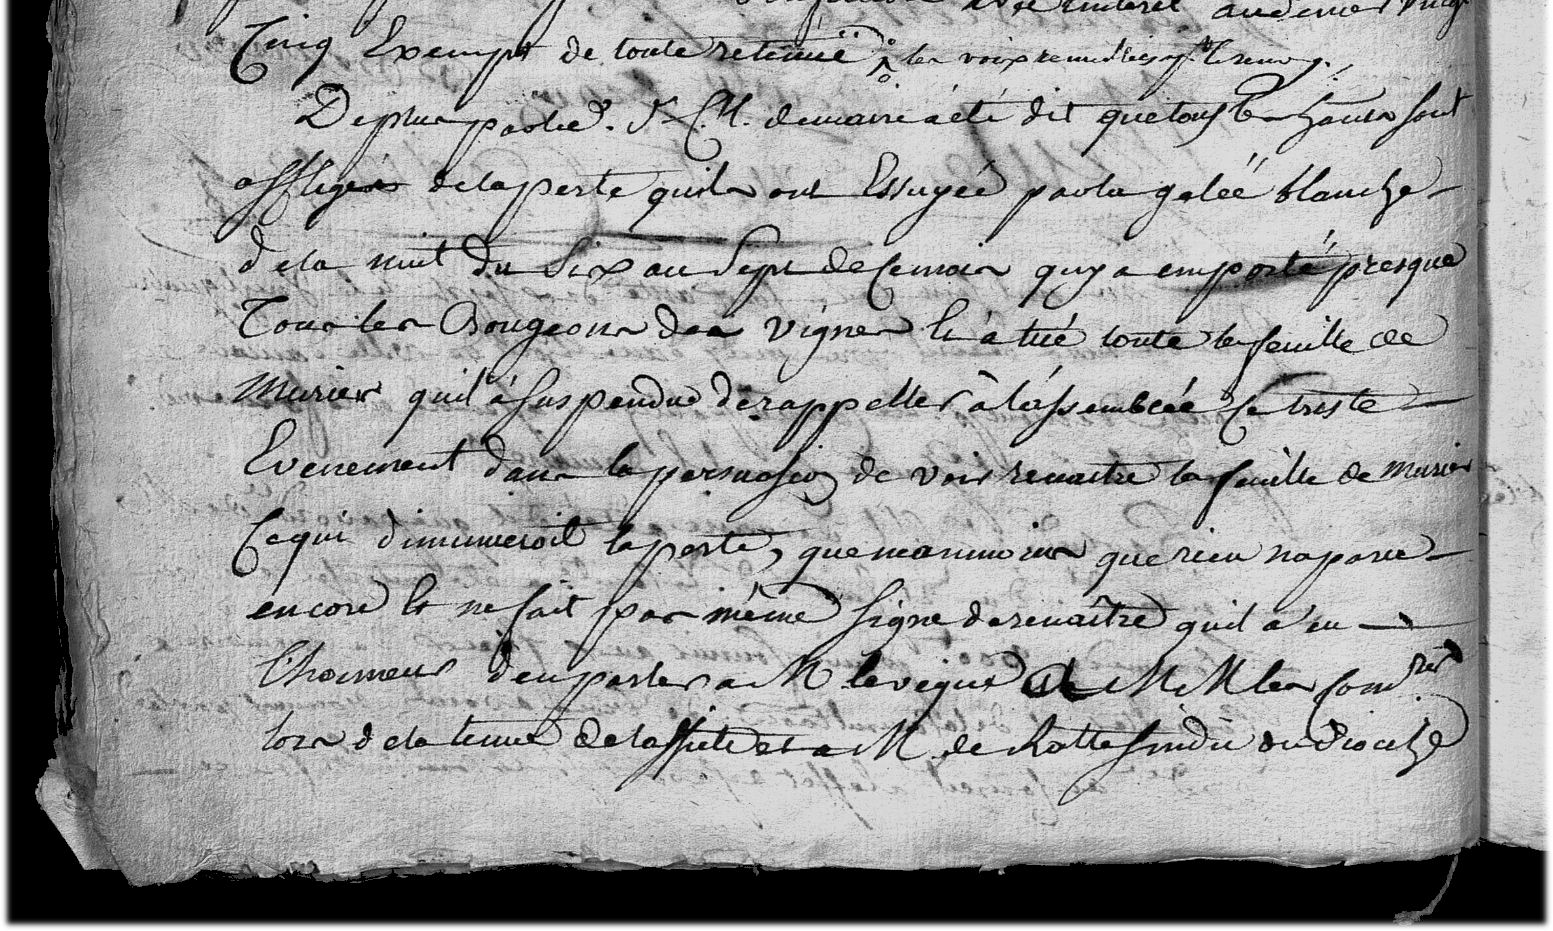 interet au denier vingt
Cinq Exempt de toute retenuë les voix remed
De plus par led. Sr. C.M. demaire a été dit que tous les haus sont
affligés de la perte quils ont Essuyéé par la geléé blanche
de la nuit du Six au Sept de Ce mois quy a emporté presque
Tous les Bougeons des vignes Et à tué toute la feuille de
Murier quil à Suspendue de rappeller à lássembléé Ce triste
Evenement dans la persuasion de voir renaitre la feuille de murier
Ce qui diminueroit la perte, que neanmoins que rien na parue
encore Et ne fait pas même Signe de renaître quil a eu
l'honneur den parler a M leveque & a MM les Comres
lors de la tenue de lassiete et a M de Rotte Sindic du Diocese